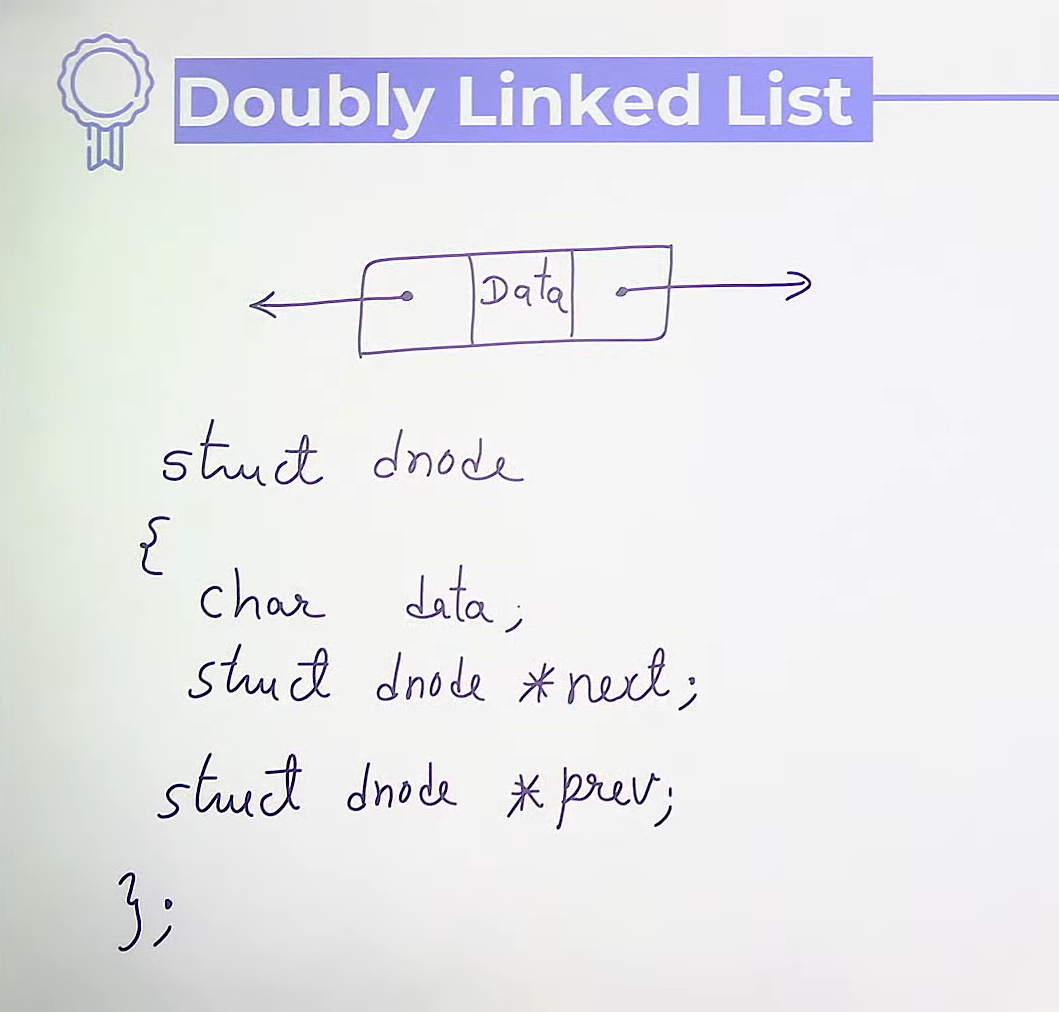 Doubly Linked List
Data
struct dnode
{
char data;
struct dnode *next;
struct dnode *prev;
};